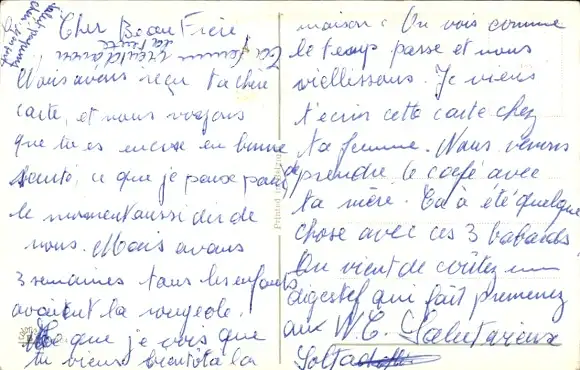 Cher Beau Frère
Nous avons reçu ta chère
carte, et nous voyons
que tu es encore en bonne
santé, ce que je peux pour
le moment aussi dir de
nous. Mais avons
3 semaines tous les enfants
avaient la rougeole.
que je vois que
tu viens bientôt à la
maison. On vois comme
le temps passe et nous
vieillissons. Je viens
t'ecrir cette carte chez
ta femme. Nous venons de
prendre le café avec
ta mère. Ca à été quelque
chose avec ces 3 babards
On vient de coûtez un
digestif qui fait premenez
aux W.C. Salut vieux
Ta femme vient d'avoir
Printed